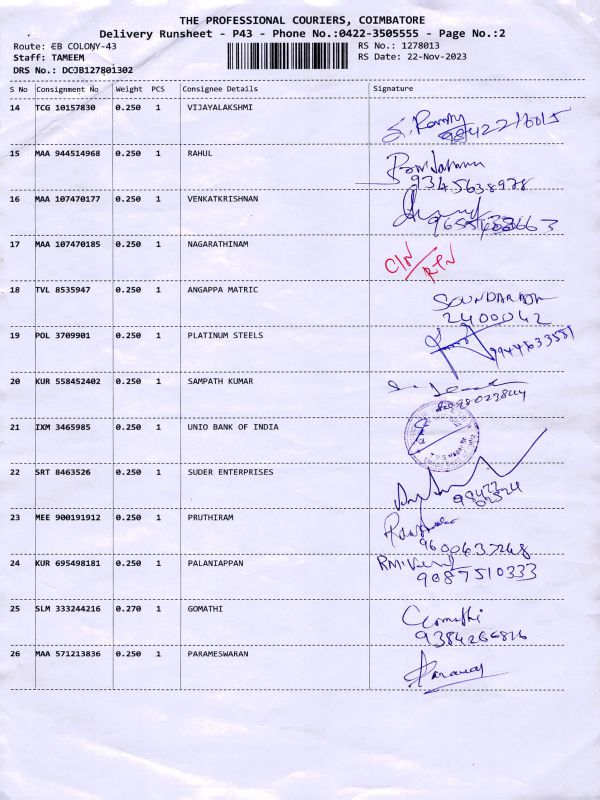 THE PROFESSIONAL COURIERS, COIMBATORE
Delivery Runsheet - P43 - Phone No.:0422-3505555 - Page No.:2
Route: EB COLONY-43 RS No.: 1278013
Staff: TAMEEM RS Date: 22-Nov-2023
DRS No.: DCJB127801302
S No Consignment No Weight PCS Consignee Details Signature
14 TCG 10157830 0.250 1 VIJAYALAKSHMI
15 MAA 944514968 0.250 1 RAHUL
9345638978
16 MAA 107470177 0.250 1 VENKATKRISHNAN
17 MAA 107470185 0.250 1 NAGARATHINAM
18 TVL 8535947 0.250 1 ANGAPPA MATRIC
2400042
19 POL 3709901 0.250 1 PLATINUM STEELS
20 KUR 558452402 0.250 1 SAMPATH KUMAR
21 IXM 3465985 0.250 1 UNIO BANK OF INDIA
22 SRT 8463526 0.250 1 SUDER ENTERPRISES
23 MEE 900191912 0.250 1 PRUTHIRAM
9600437248
24 KUR 695498181 0.250 1 PALANIAPPAN
9087510333
25 SLM 333244216 0.270 1 GOMATHI
Gomathi
9384266826
26 MAA 571213836 0.250 1 PARAMESWARAN